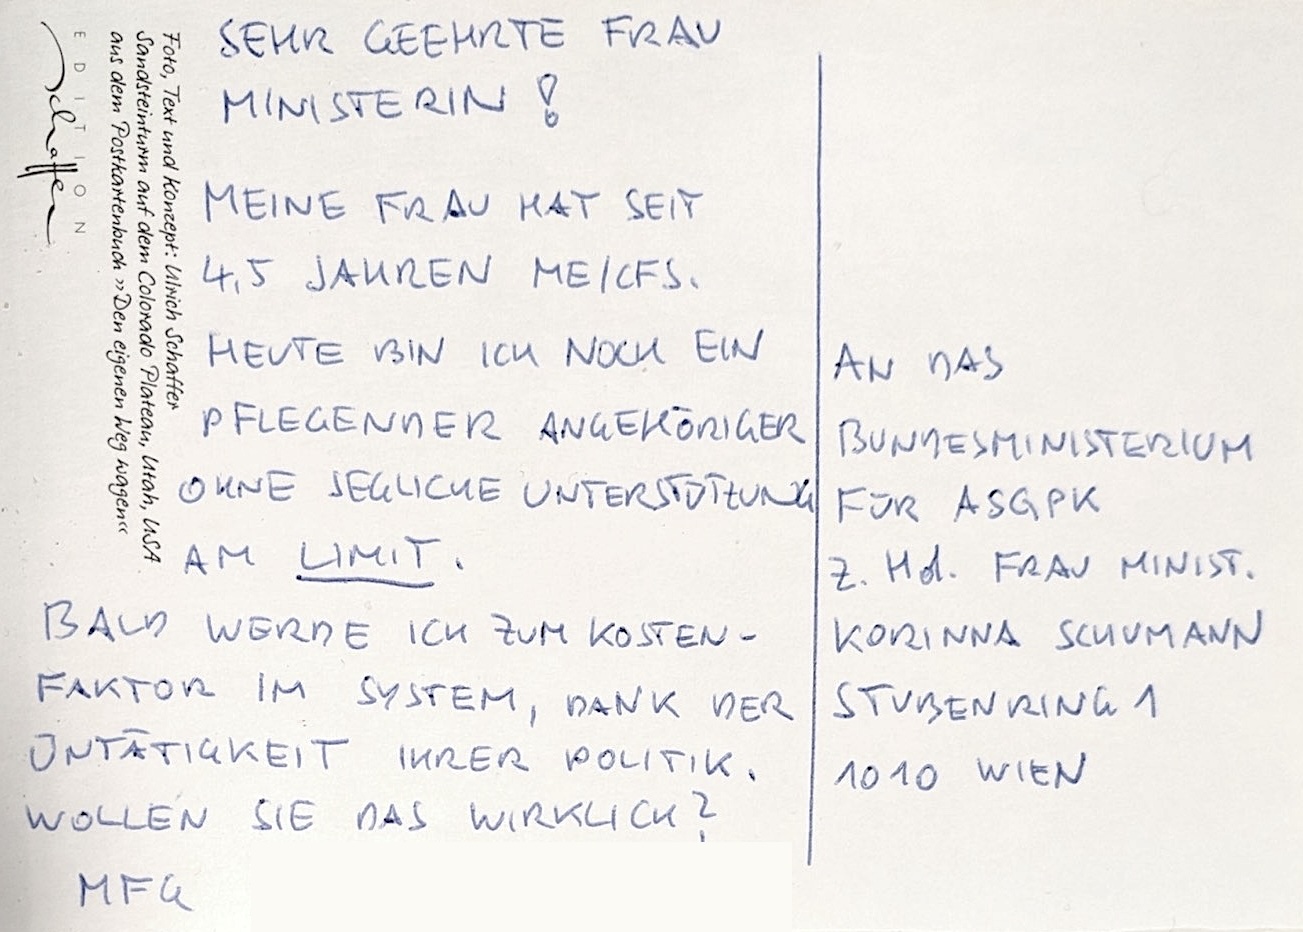 EDITION
Schaffer
Foto, Text und Konzept: Ulrich Schaffer
Sandsteinturm auf dem Colorado Plateau, Utah, USA
aus dem Postkartenbuch »Den eigenen Weg wagen«
SEHR GEEHRTE FRAU
MINISTERIN!
MEINE FRAU HAT SEIT
4,5 JAHREN ME/CFS.
HEUTE BIN ICH NOCH EIN
PFLEGENDER ANGEHÖRIGER
OHNE JEGLICHE UNTERSTÜTZUNG
AM LIMIT.
BALD WERDE ICH ZUM KOSTEN-
FAKTOR IM SYSTEM, DANK DER
UNTÄTIGKEIT IHRER POLITIK.
WOLLEN SIE DAS WIRKLICH?
MFG
AN DAS
BUNDESMINISTERIUM
FÜR ASGPK
Z. Hd. FRAU MINIST.
KORINNA SCHUMANN
STUBENRING 1
1010 WIEN